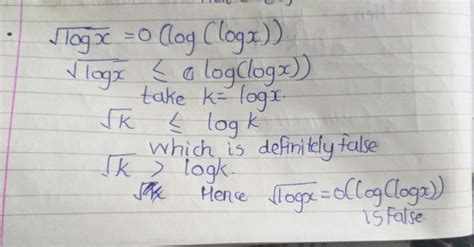 • √logx = O(log(logx)).
√logx ≤ c log(logx))
take k= logx.
√k ≤ logk
which is definitely false
√k > logk.
Hence √logx=O(log(logx))
is False